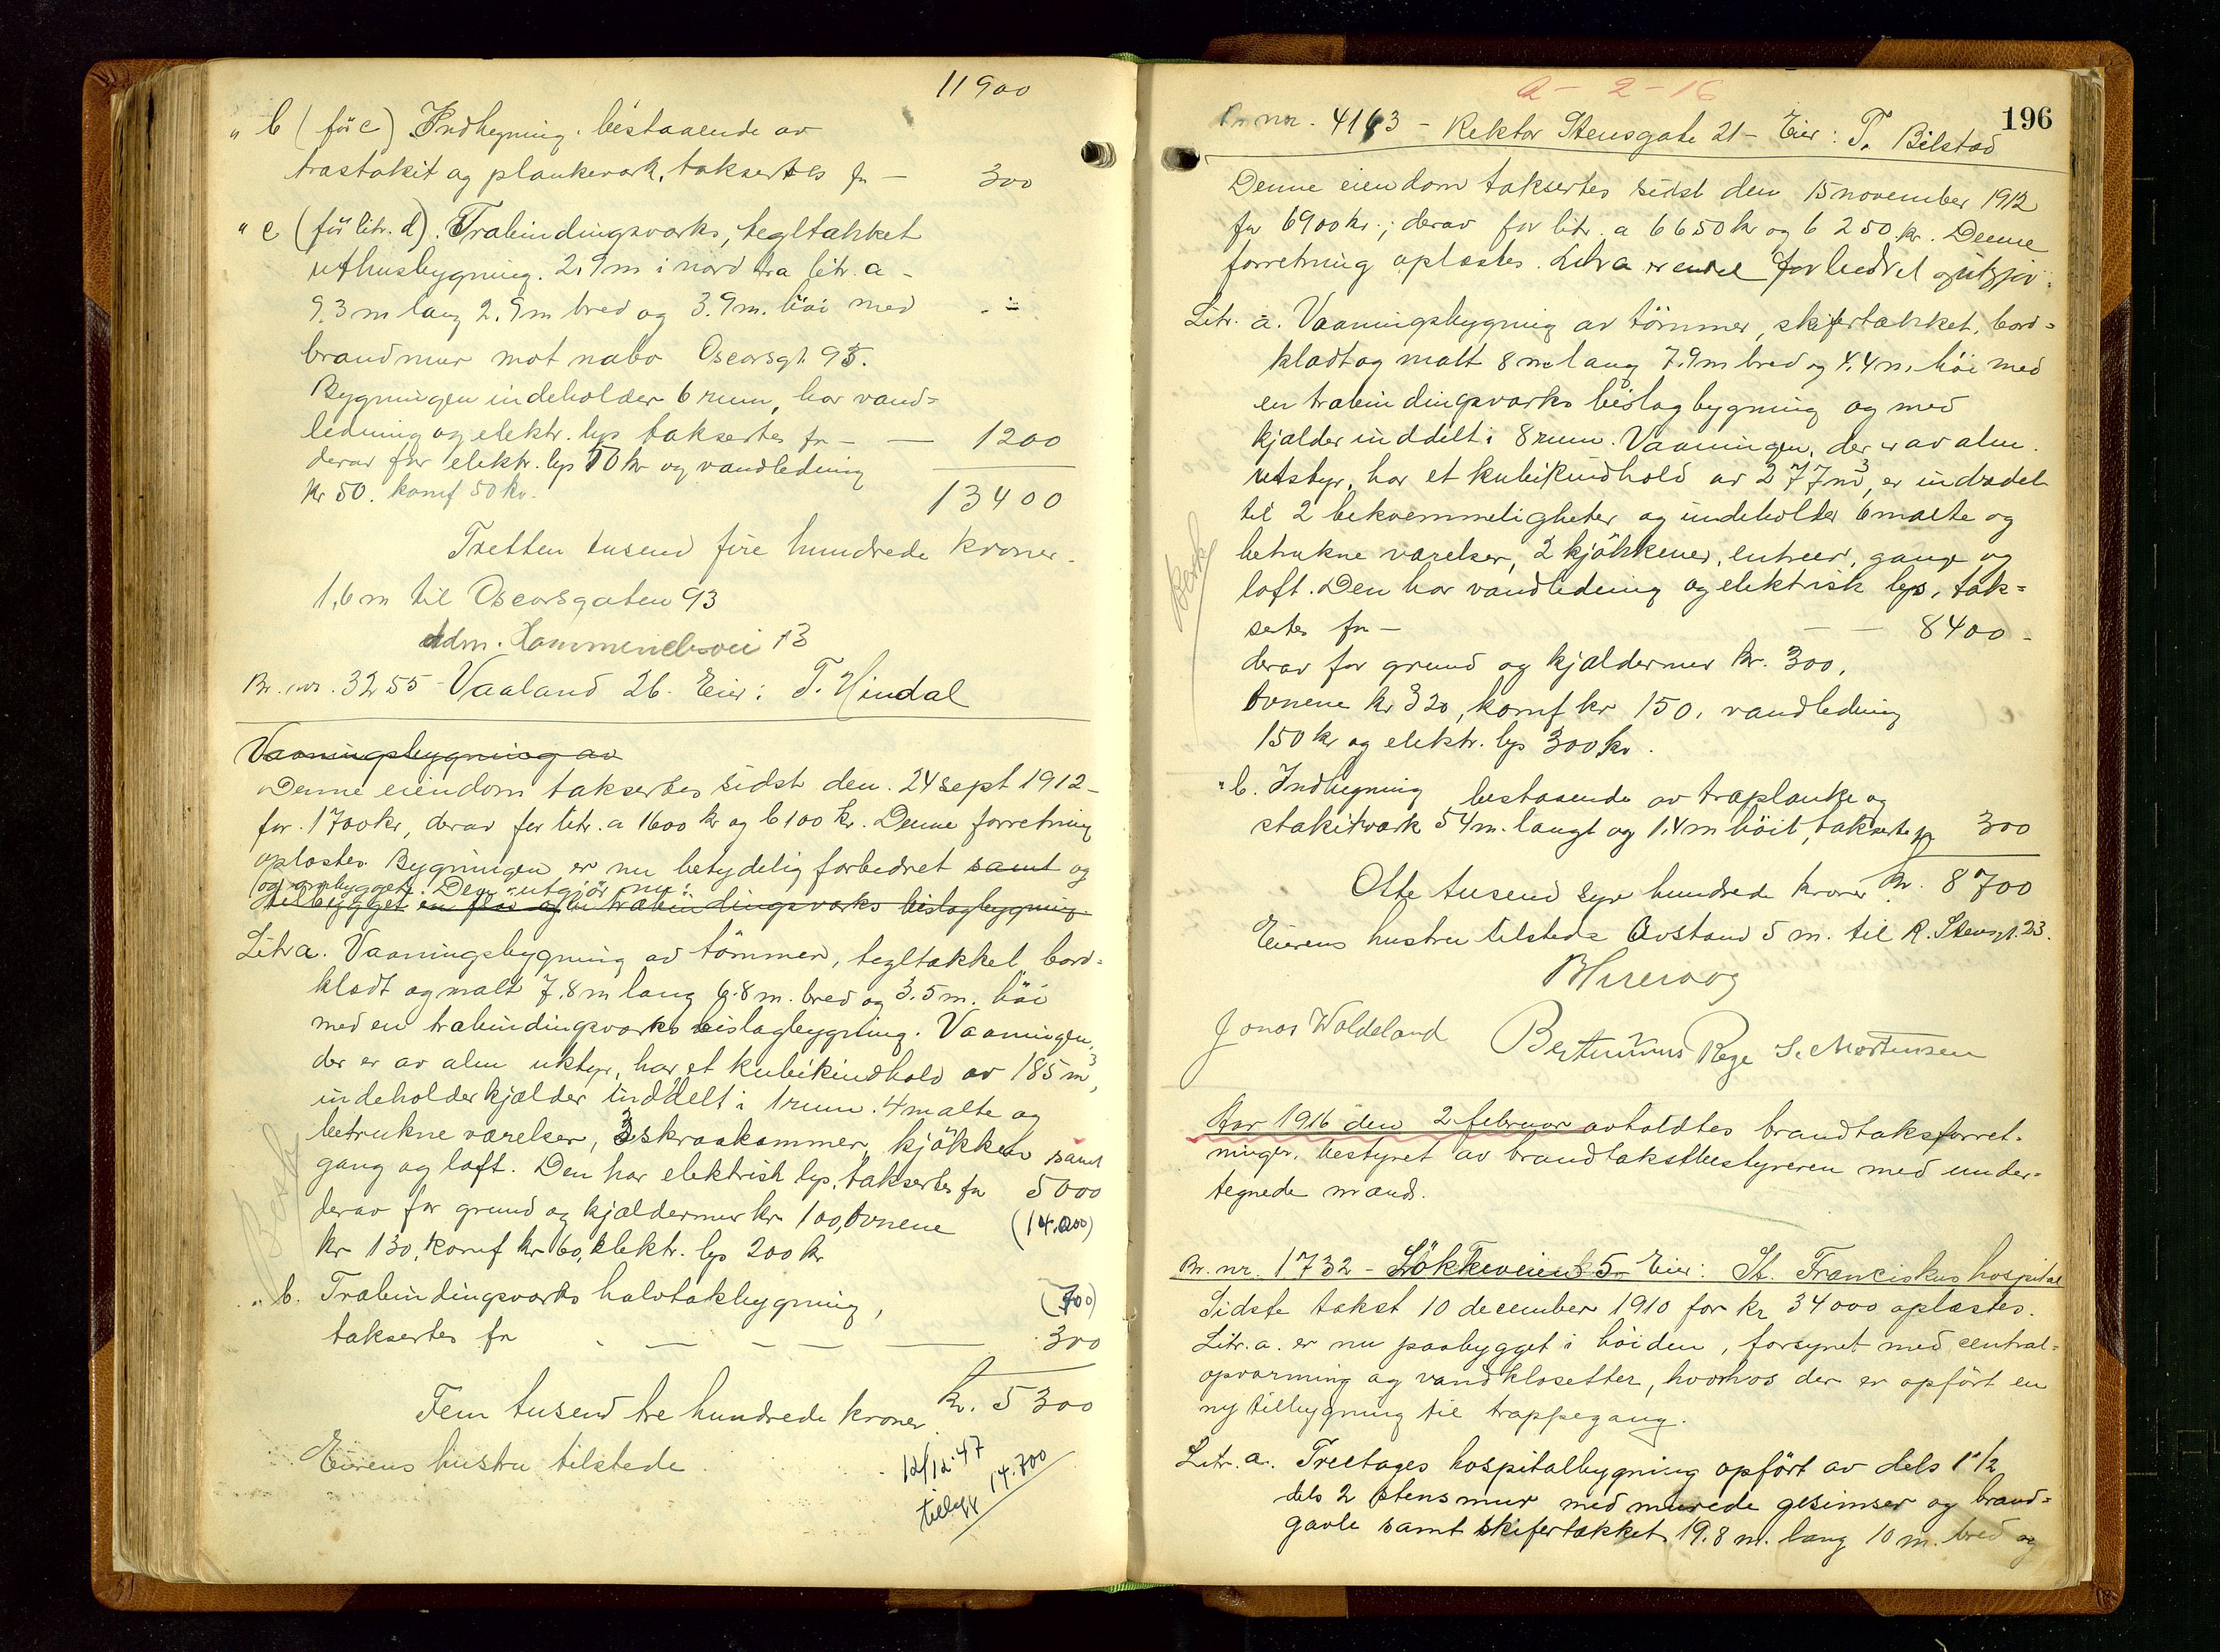 11900
" b (för c) Indhegning, bestaaende av
træstakit og plankeverk, taksertes fr — 300
" c (för litr. d). Træbindingsverks, tegltækket
uthusbygning. 2,9 m i nord fra litr. a -
9.3 m lang 2.9 m bred og 3.9 m. höi med
brandmur mot nabo Oscarsgt. 95.
Bygningen indeholder 6 rum, har vand=
ledning og elektr. lys taksertes fr — — 1200
derav for elektr. lys 50 kr og vandledning
kr 50. komf 50 kr. 13400
Tretten tusend fire hundrede kroner.
1,6 m til Oscarsgaten 93
Br. nr. 3255 - Vaaland 26. Eier: T. Hindal
Vaaningsbygning av
Denne eiendom taksertes sidst den. 24 sept 1912 -
for. 1700 kr, derav for litr. a 1600 kr og b 100 kr. Denne forretning
oplæstes. Bygningen er nu betydelig forbedret samt og
og ombygget. Den utgjör nu:
tilbygget en flöi og en træbindingsverks bislagbygning.
Litr a. Vaaningsbygning av tömmer, tegltækket bord=
klædt og malt 7.8 m lang 6.8 m. bred og 3.5 m. höi
med en træbindingsverks bislagbygning. Vaaningen,
der er av alm utstyr, har et kubikindhold av 185 m³,
indeholder kjælder inddelt i 1 rum. 4 malte og
betrukne værelser, 3 skraakammer, kjökken samt
gang og loft. Den har elektrisk lys, taksertes fr 5000
derav for grund og kjældermur kr 100, ovnene (14.000)
kr 130, komf kr 60, elektr. lys 200 kr
" b. Træbindingsverks halvtakbygning, (700)
taksertes fr — — — — 300
Fem tusend tre hundrede kroner kr. 5300
Eierens hustru tilstede.
12/12.47
tillegg 14.700
a - 2 - 16
196
Br. nr. 4163 - Rektor Stensgate 21 - Eier: T. Bilstad
Denne eiendom taksertes sidst den 15 november 1912
for 6900 kr.; derav for litr. a 6650 kr og b 250 kr. Denne
forretning oplæstes. Litra a er endel forbedret og utgjör:
Litr. a. Vaaningsbygning av tömmer, skifertækket, bord=
klædt og malt 8 m lang 7.9 m bred og 4.4 m. höi med
en træbindingsverks bislagbygning og med
kjælder inddelt i 8 rum. Vaaningen, der er av alm.
utstyr, har et kubikindhold av 277 m³, er inddelt
til 2 bekvemmeligheter og indeholder 6 malte og
betrukne værelser, 2 kjökkener, entreer, gange og
loft. Den har vandledning og elektrisk lys, tak=
sertes fr — — — 8400 -
derav for grund og kjældermur kr. 300,
ovnene kr 320, komf kr 150, vandledning
150 kr og elektr. lys 300 kr.
" b. Indhegning bestaaende av træplanke og
stakitverk 54 m. langt og 1.4 m höit, taksertes fr 300
Otte tusend syv hundrede kroner kr. 8700
Eierens hustru tilstede Avstand 5 m. til R. Stensgt. 23.
Jonas Woldeland Bertinius Rege S. Mortensen
Aar 1916 den 2 februar avholdtes brandtaksforret=
ninger, bestyret av brandtakstbestyreren med under=
tegnede mænd.
Br. nr. 1732 - Lökkeveien 51 Eier: St. Franciskus hospital
Sidste takst 10 december 1910 for kr 34000 oplæstes.
Litr. a. er nu paabygget i höiden, forsynet med central=
opvarming og vandklosetter, hvorhos der er opfört en
ny tilbygning til trappegang.
Litr. a. Treetages hospitalbygning opfört av dels 1 1/2
dels 2 stens mur med murede gesimser og brand=
gavle samt skifertækket, 19.8 m. lang 10 m. bred og